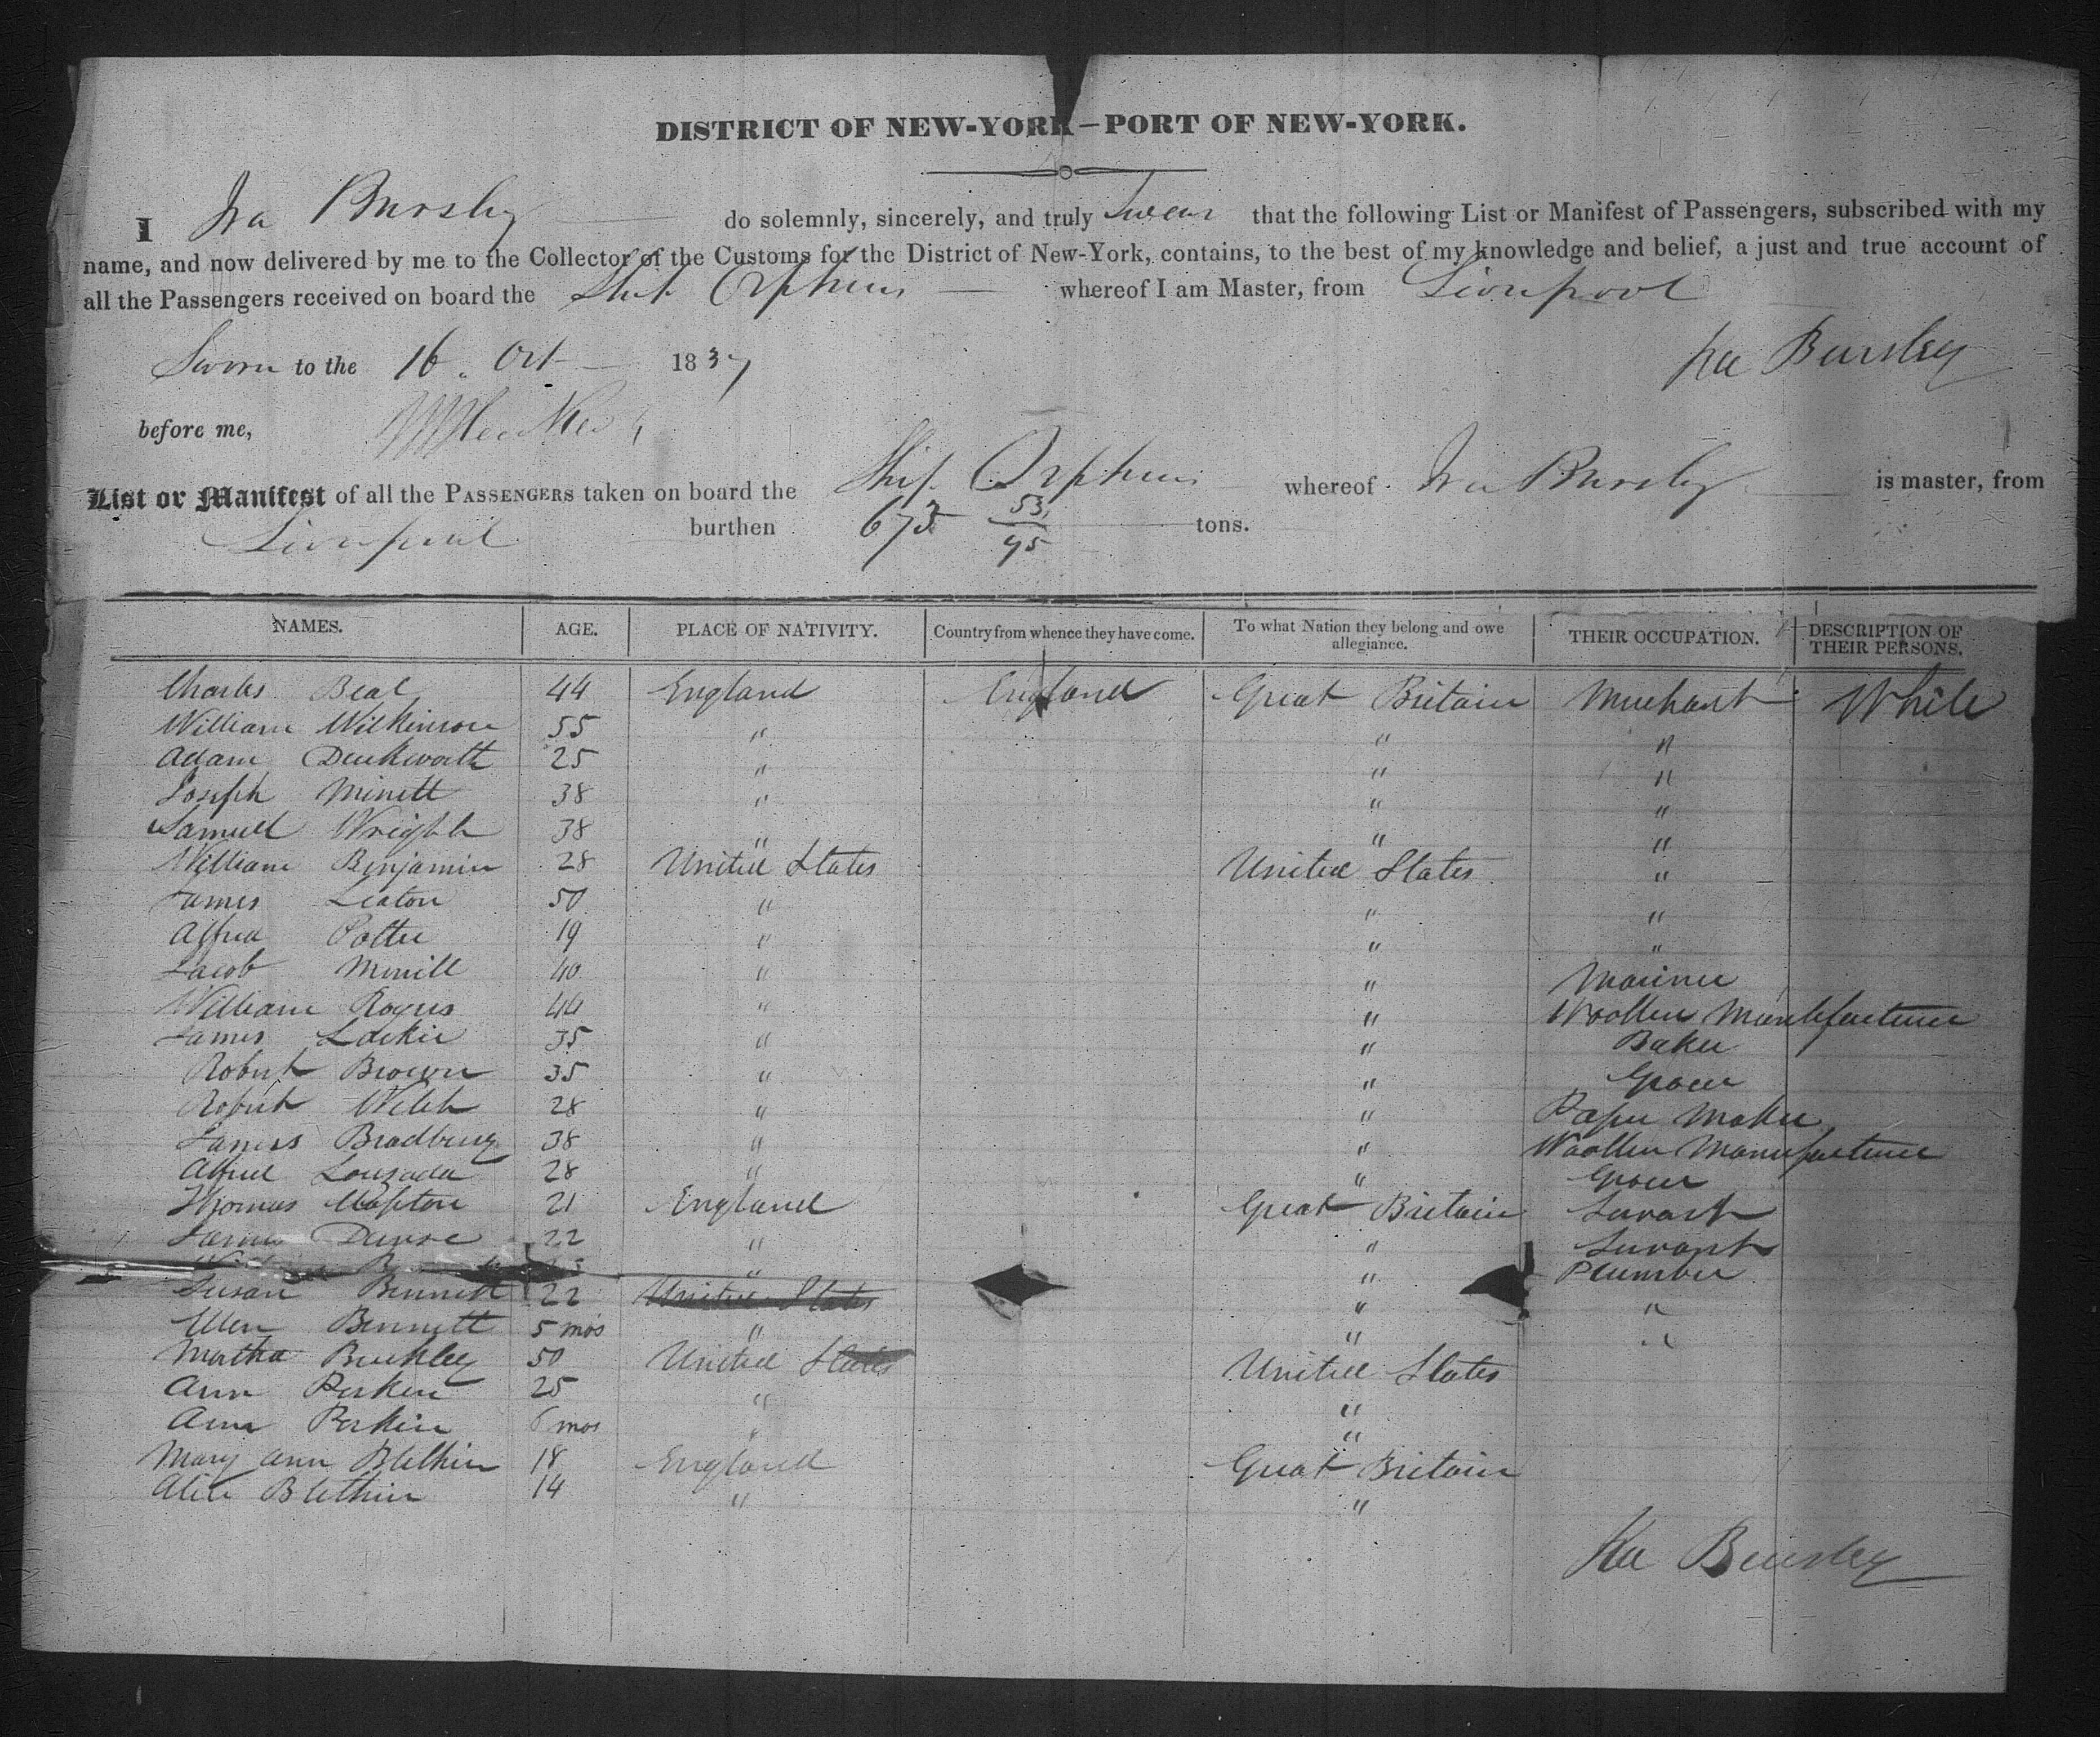 DISTRICT OF NEW-YORK—PORT OF NEW-YORK.
I Ira Bursley do solemnly, sincerely, and truly Swear that the following List or Manifest of Passengers, subscribed with my
name, and now delivered by me to the Collector of the Customs for the District of New-York, contains, to the best of my knowledge and belief, a just and true account of
all the Passengers received on board the Ship Orpheus whereof I am Master, from Liverpool
Sworn to the 16 Oct 1837 Ira Bursley
before me,
List or Manifest of all the PASSENGERS taken on board the Ship Orpheus whereof Ira Bursley is master, from
Liverpool burthen 573 53/95 tons.
NAMES. AGE. PLACE OF NATIVITY. Country from whence they have come. To what Nation they belong and owe allegiance. THEIR OCCUPATION. DESCRIPTION OF THEIR PERSONS.
Charles Beal 44 England England Great Britain Merchant White
William Wilkinson 55 " " "
Adam Duckworth 25 " " "
Joseph Minett 38 " " "
Samuel Wright 38 " " "
William Benjamin 28 United States United States "
James Leaton 50 " " "
Alfred Potter 19 " " "
Jacob Merrill 40 " " Mariner
William Rogers 44 " " Woollen Manufacturer
James Lockie 35 " " Baker
Robert Brown 35 " " Grocer
Robert Welch 28 " " Paper Maker
James Bradbury 38 " " Woollen Manufacturer
Alfred Louzada 28 " " Grocer
Thomas Clapton 21 England Great Britain Servant
James Dawse 22 " " Servant
" " Plumber
Susan Bennett 22 United States " "
Ellen Bennett 5 mos " " "
Martha Buckley 50 United States United States
Ann Perkin 25 " "
Ann Perkin 6 mos " "
Mary Ann Blethin 18 England Great Britain
Alice Blethin 14 " "
Ira Bursley